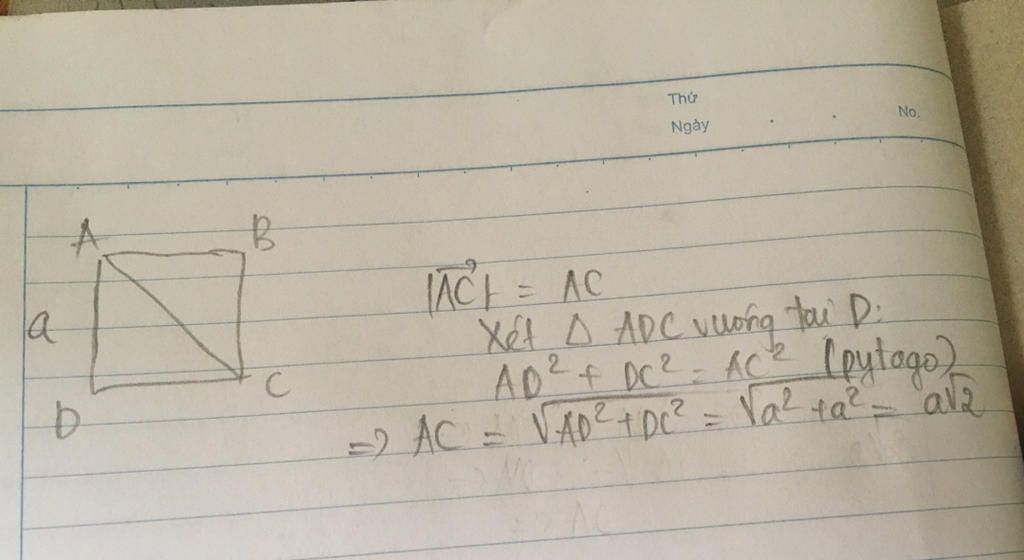 Thứ
Ngày
No.
A
B
a
D
C
|AC⃗| = AC
Xét Δ ADC vuông tại D:
AD² + DC² = AC² (pytago)
=> AC = √(AD²+DC²) = √(a²+a²) = a√2